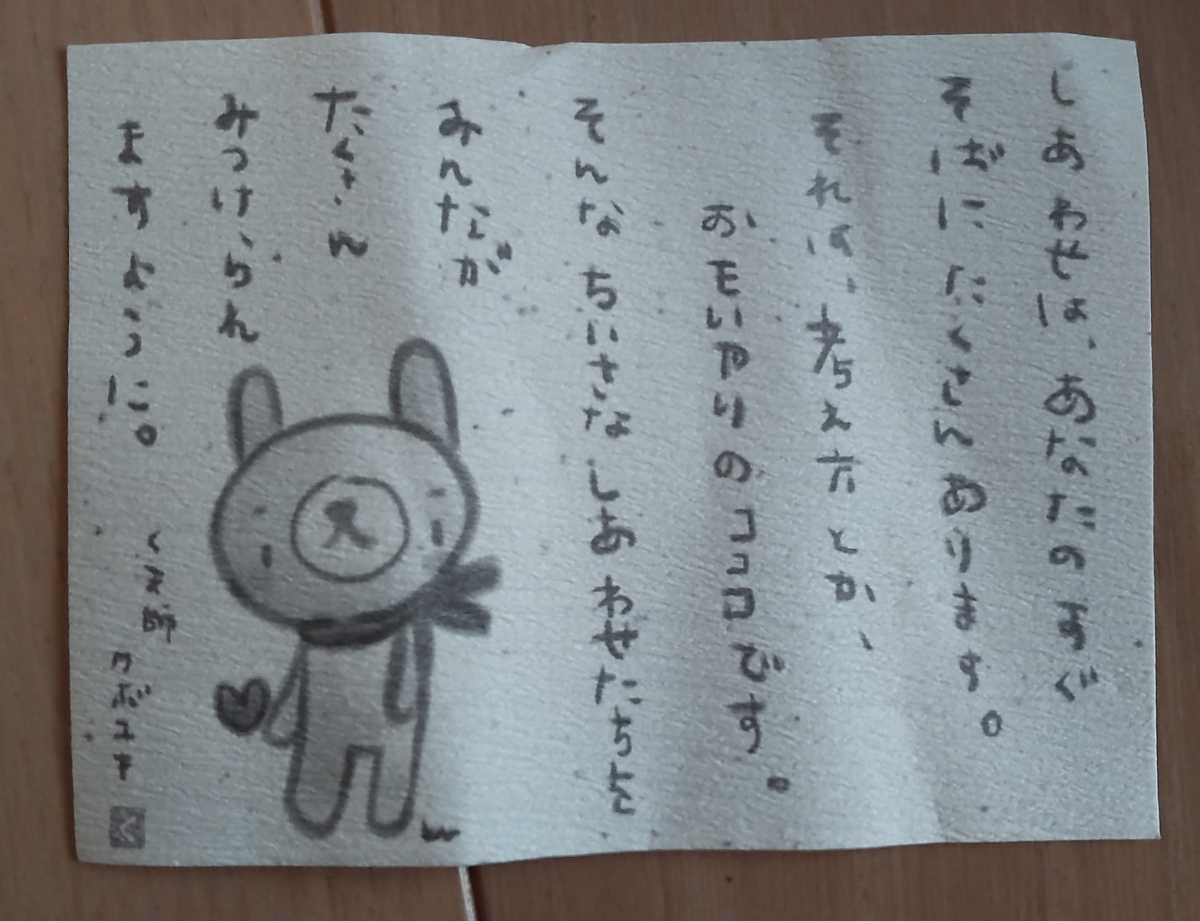 しあわせは、あなたのすぐ
そばにたくさんあります。
それは、考え方とか、
おモいヤりのココロです。
そんなちいさなしあわせたちを
みんなが
たくさん
みつけられ
ますように。
くま師
クボユキ